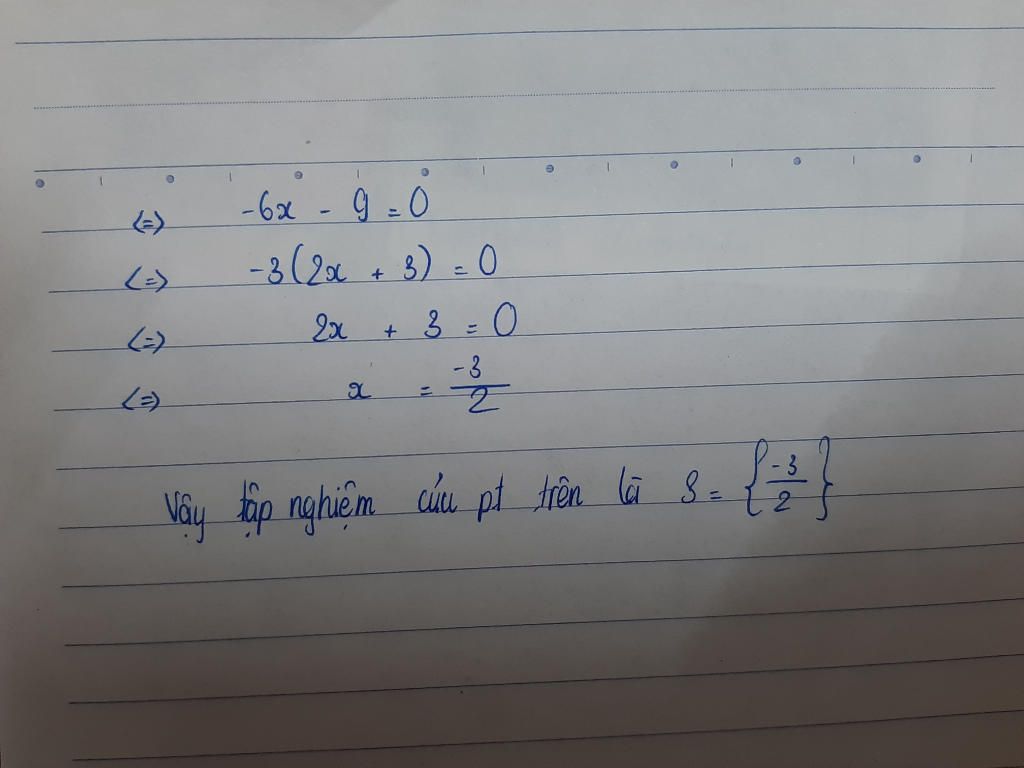 <=> -6x - 9 = 0
<=> -3(2x + 3) = 0
<=> 2x + 3 = 0
<=> x = -3/2
Vậy tập nghiệm của pt trên là S = {-3/2}